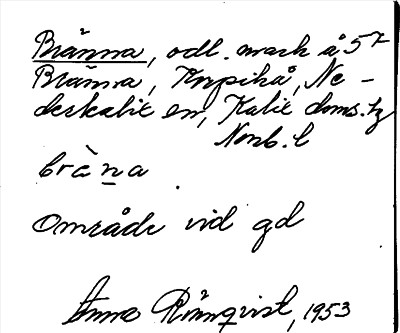 Bränna, odl. mark å 5²
Bränna, Korpikå, Ne-
derkalix sn, Kalix doms. hg
Norrb. l
bràna
Område vid gd
Anna Rönnqvist, 1953